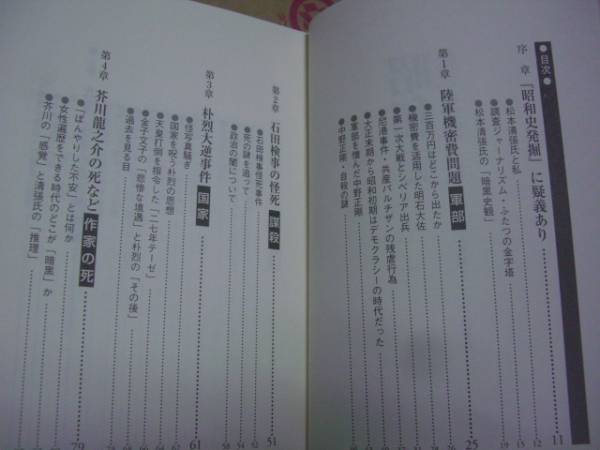 ●目次●
序章 『昭和史発掘』に疑義あり 11
●松本清張氏と私
●調査ジャーナリズム・ふたつの金字塔
●松本清張氏の「暗黒史観」
第1章 陸軍機密費問題 軍部 25
●三百万円はどこから出たか
●機密費を活用した明石大佐
●第一次大戦とシベリア出兵
●尼港事件・共産パルチザンの残虐行為
●大正末期から昭和初期はデモクラシーの時代だった
●軍部を憎んだ中野正剛
●中野正剛・自殺の謎
第2章 石田検事の怪死 謀殺 51
●石田検事怪死事件
●死の謎を追って
●政治の闇について
第3章 朴烈大逆事件 国家 61
●怪写真騒ぎ
●国家を呪う朴烈の思想
●天皇打倒を指令した「二七年テーゼ」
●金子文子の「悲惨な境遇」と朴烈の「その後」
●過去を見る目
第4章 芥川龍之介の死など 作家の死 79
●「ぼんやりした不安」とは何か
●女性遍歴をできる時代のどこが「暗黒」か
●芥川の「感覚」と清張氏の「推理」